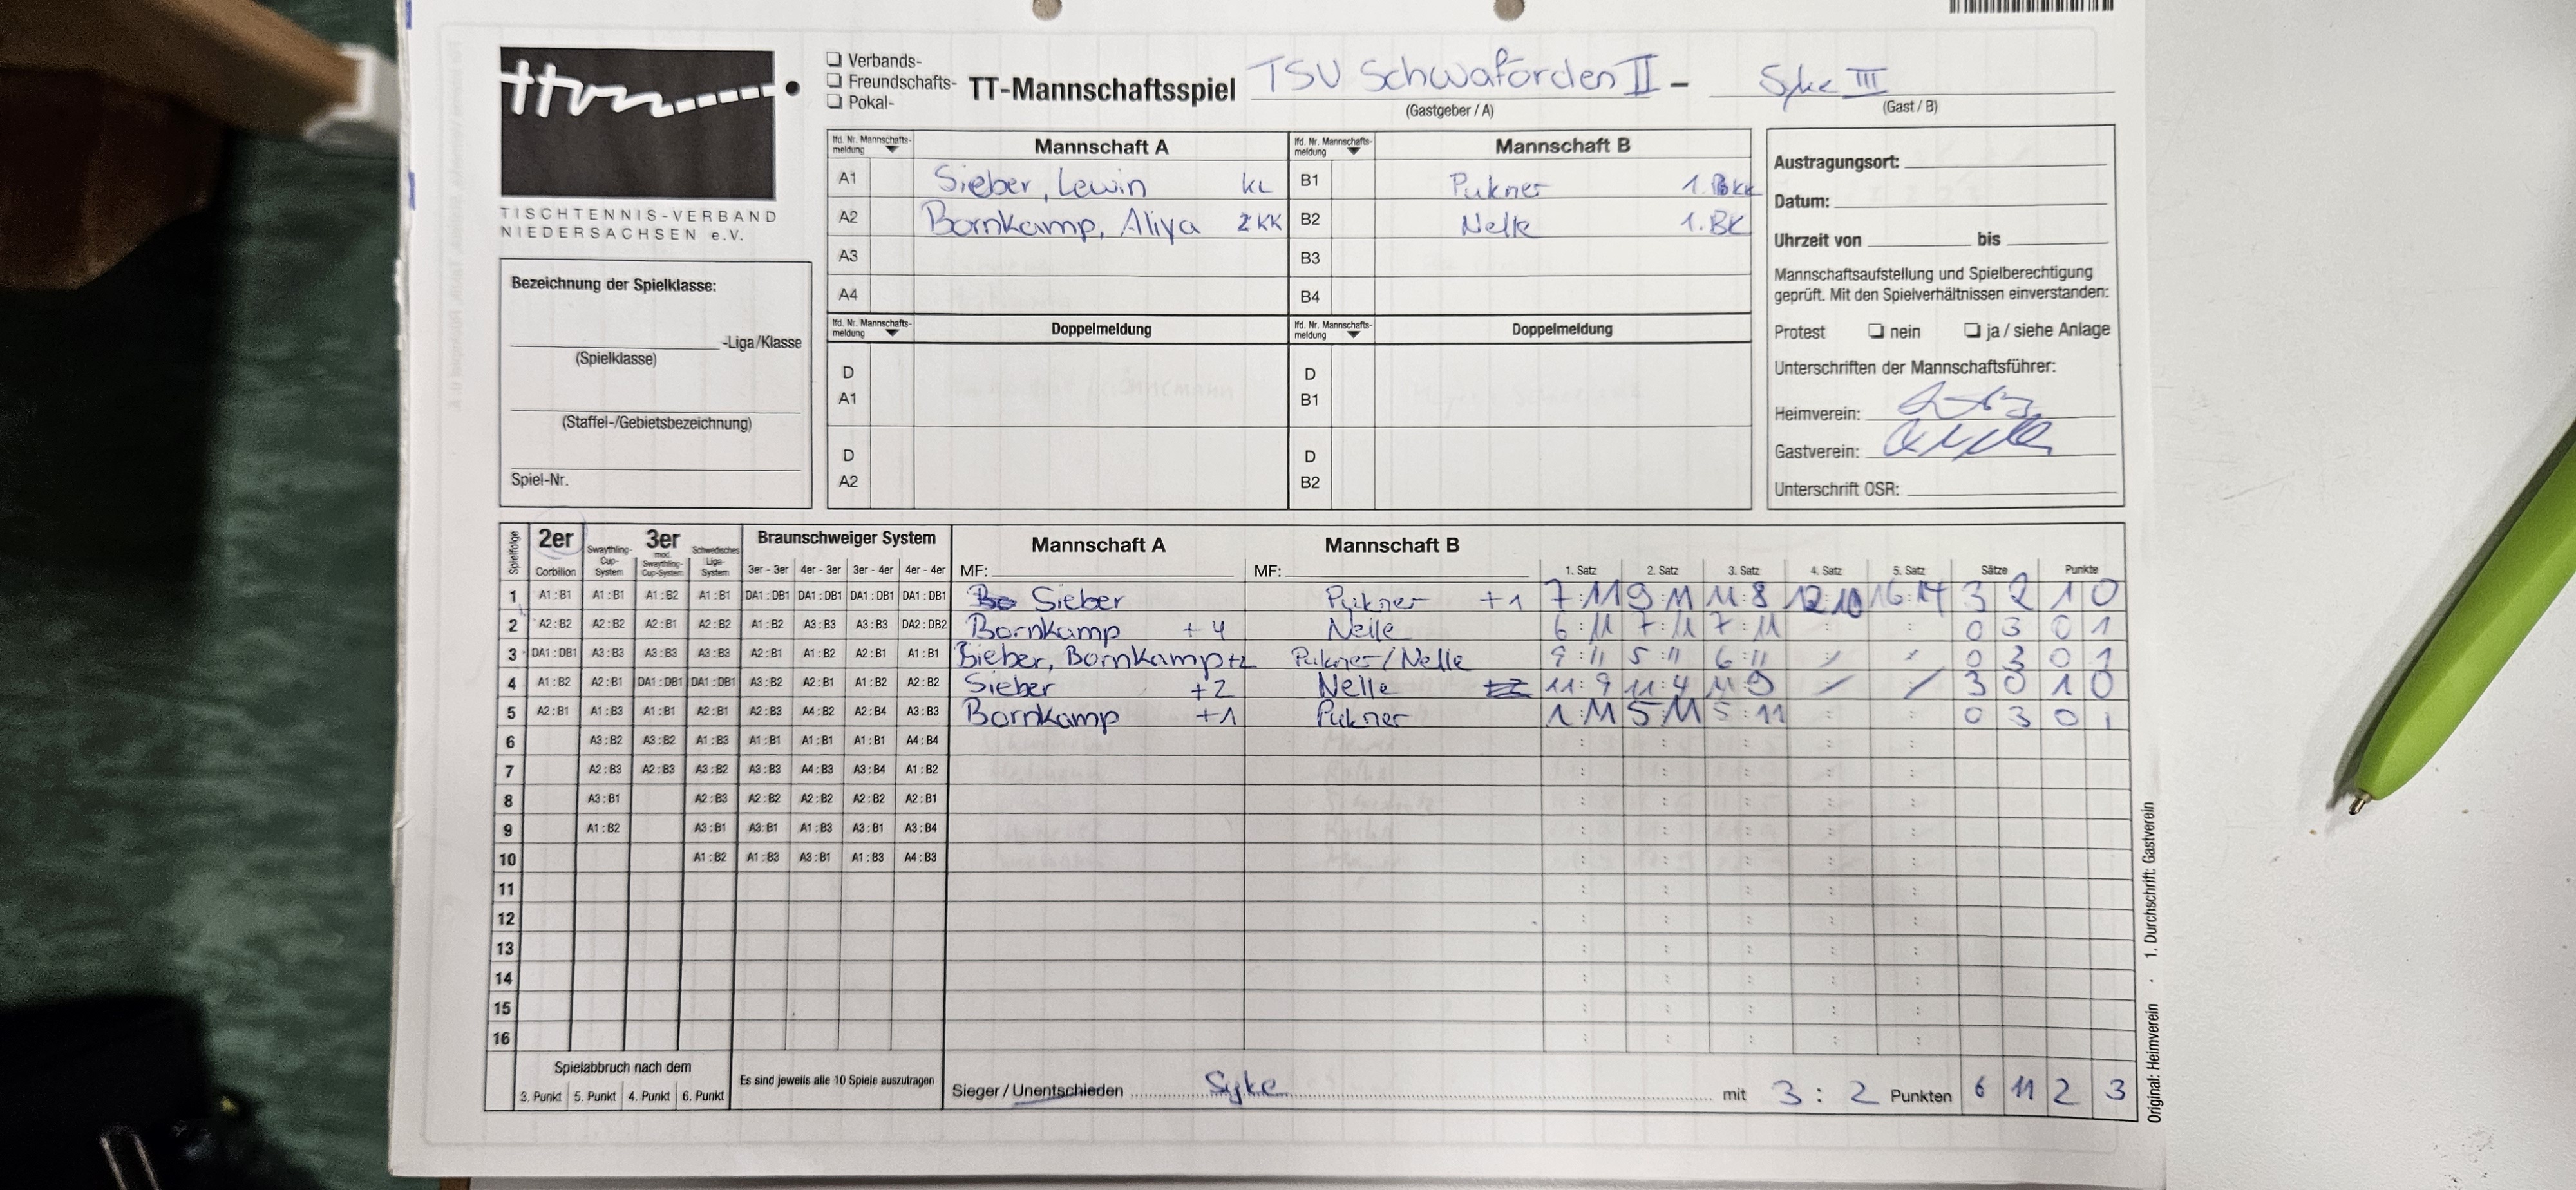 ttvn
TISCHTENNIS-VERBAND
NIEDERSACHSEN e.V.
❏ Verbands-
❏ Freundschafts-
❏ Pokal-
TT-Mannschaftsspiel TSV Schwaförden II – Syke III
(Gastgeber / A) (Gast / B)
lfd. Nr. Mannschafts-meldung Mannschaft A lfd. Nr. Mannschafts-meldung Mannschaft B
A1 Sieber, Lewin KL B1 Pukner 1. BKK
A2 Bornkamp, Aliya 2KK B2 Nelle 1. BK
A3 B3
A4 B4
lfd. Nr. Mannschafts-meldung Doppelmeldung lfd. Nr. Mannschafts-meldung Doppelmeldung
D A1 D B1
D A2 D B2
Bezeichnung der Spielklasse:
-Liga/Klasse
(Spielklasse)
(Staffel-/Gebietsbezeichnung)
Spiel-Nr.
Austragungsort:
Datum:
Uhrzeit von bis
Mannschaftsaufstellung und Spielberechtigung
geprüft. Mit den Spielverhältnissen einverstanden:
Protest ❏ nein ❏ ja / siehe Anlage
Unterschriften der Mannschaftsführer:
Heimverein:
Gastverein:
Unterschrift OSR:
Spielfolge 2er 3er Braunschweiger System Mannschaft A Mannschaft B
Corbillon Swaythling-Cup-System mod. Swaythling-Cup-System Schwedisches Liga-System 3er - 3er 4er - 3er 3er - 4er 4er - 4er MF: MF: 1. Satz 2. Satz 3. Satz 4. Satz 5. Satz Sätze Punkte
1 A1 : B1 A1 : B1 A1 : B2 A1 : B1 DA1 : DB1 DA1 : DB1 DA1 : DB1 DA1 : DB1 Sieber Pukner +1 7:11 9:11 11:8 12:10 16:14 3 2 1 0
2 A2 : B2 A2 : B2 A2 : B1 A2 : B2 A1 : B2 A3 : B3 A3 : B3 DA2 : DB2 Bornkamp +4 Nelle 6:11 7:11 7:11 : : 0 3 0 1
3 DA1 : DB1 A3 : B3 A3 : B3 A3 : B3 A2 : B1 A1 : B2 A2 : B1 A1 : B1 Sieber, Bornkamp +2 Pukner/Nelle 9:11 5:11 6:11 0 3 0 1
4 A1 : B2 A2 : B1 DA1 : DB1 DA1 : DB1 A3 : B2 A2 : B1 A1 : B2 A2 : B2 Sieber +2 Nelle 11:9 11:4 11:9 3 0 1 0
5 A2 : B1 A1 : B3 A1 : B1 A2 : B1 A2 : B3 A4 : B2 A2 : B4 A3 : B3 Bornkamp +1 Pukner 1:11 5:11 5:11 : : 0 3 0 1
6 A3 : B2 A3 : B2 A1 : B3 A1 : B1 A1 : B1 A1 : B1 A4 : B4 : : : : :
7 A2 : B3 A2 : B3 A3 : B2 A3 : B3 A4 : B3 A3 : B4 A1 : B2 : : : : :
8 A3 : B1 A2 : B3 A2 : B2 A2 : B2 A2 : B2 A2 : B1 : : : : :
9 A1 : B2 A3 : B1 A3 : B1 A1 : B3 A3 : B1 A3 : B4 : : : : :
10 A1 : B2 A1 : B3 A3 : B1 A1 : B3 A4 : B3 : : : : :
11 : : : : :
12 : : : : :
13 : : : : :
14 : : : : :
15 : : : : :
16 : : : : :
Spielabbruch nach dem
3. Punkt 5. Punkt 4. Punkt 6. Punkt
Es sind jeweils alle 10 Spiele auszutragen
Sieger / Unentschieden Syke mit 3 : 2 Punkten 6 11 2 3
Original: Heimverein · 1. Durchschrift: Gastverein